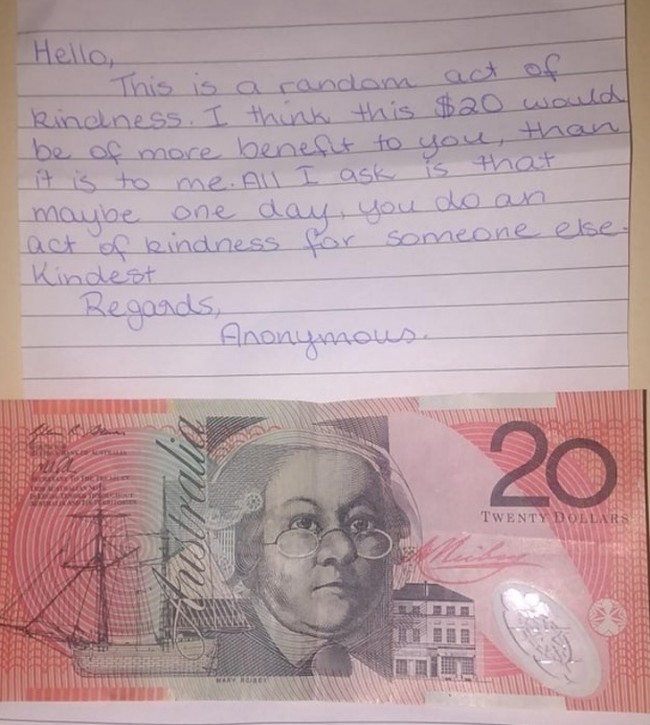 Hello,
This is a random act of
kindness. I think this $20 would
be of more benefit to you, than
it is to me. All I ask is that
maybe one day, you do an
act of kindness for someone else.
Kindest
Regards,
Anonymous.
Australia
20
TWENTY DOLLARS
MARY REIBEY